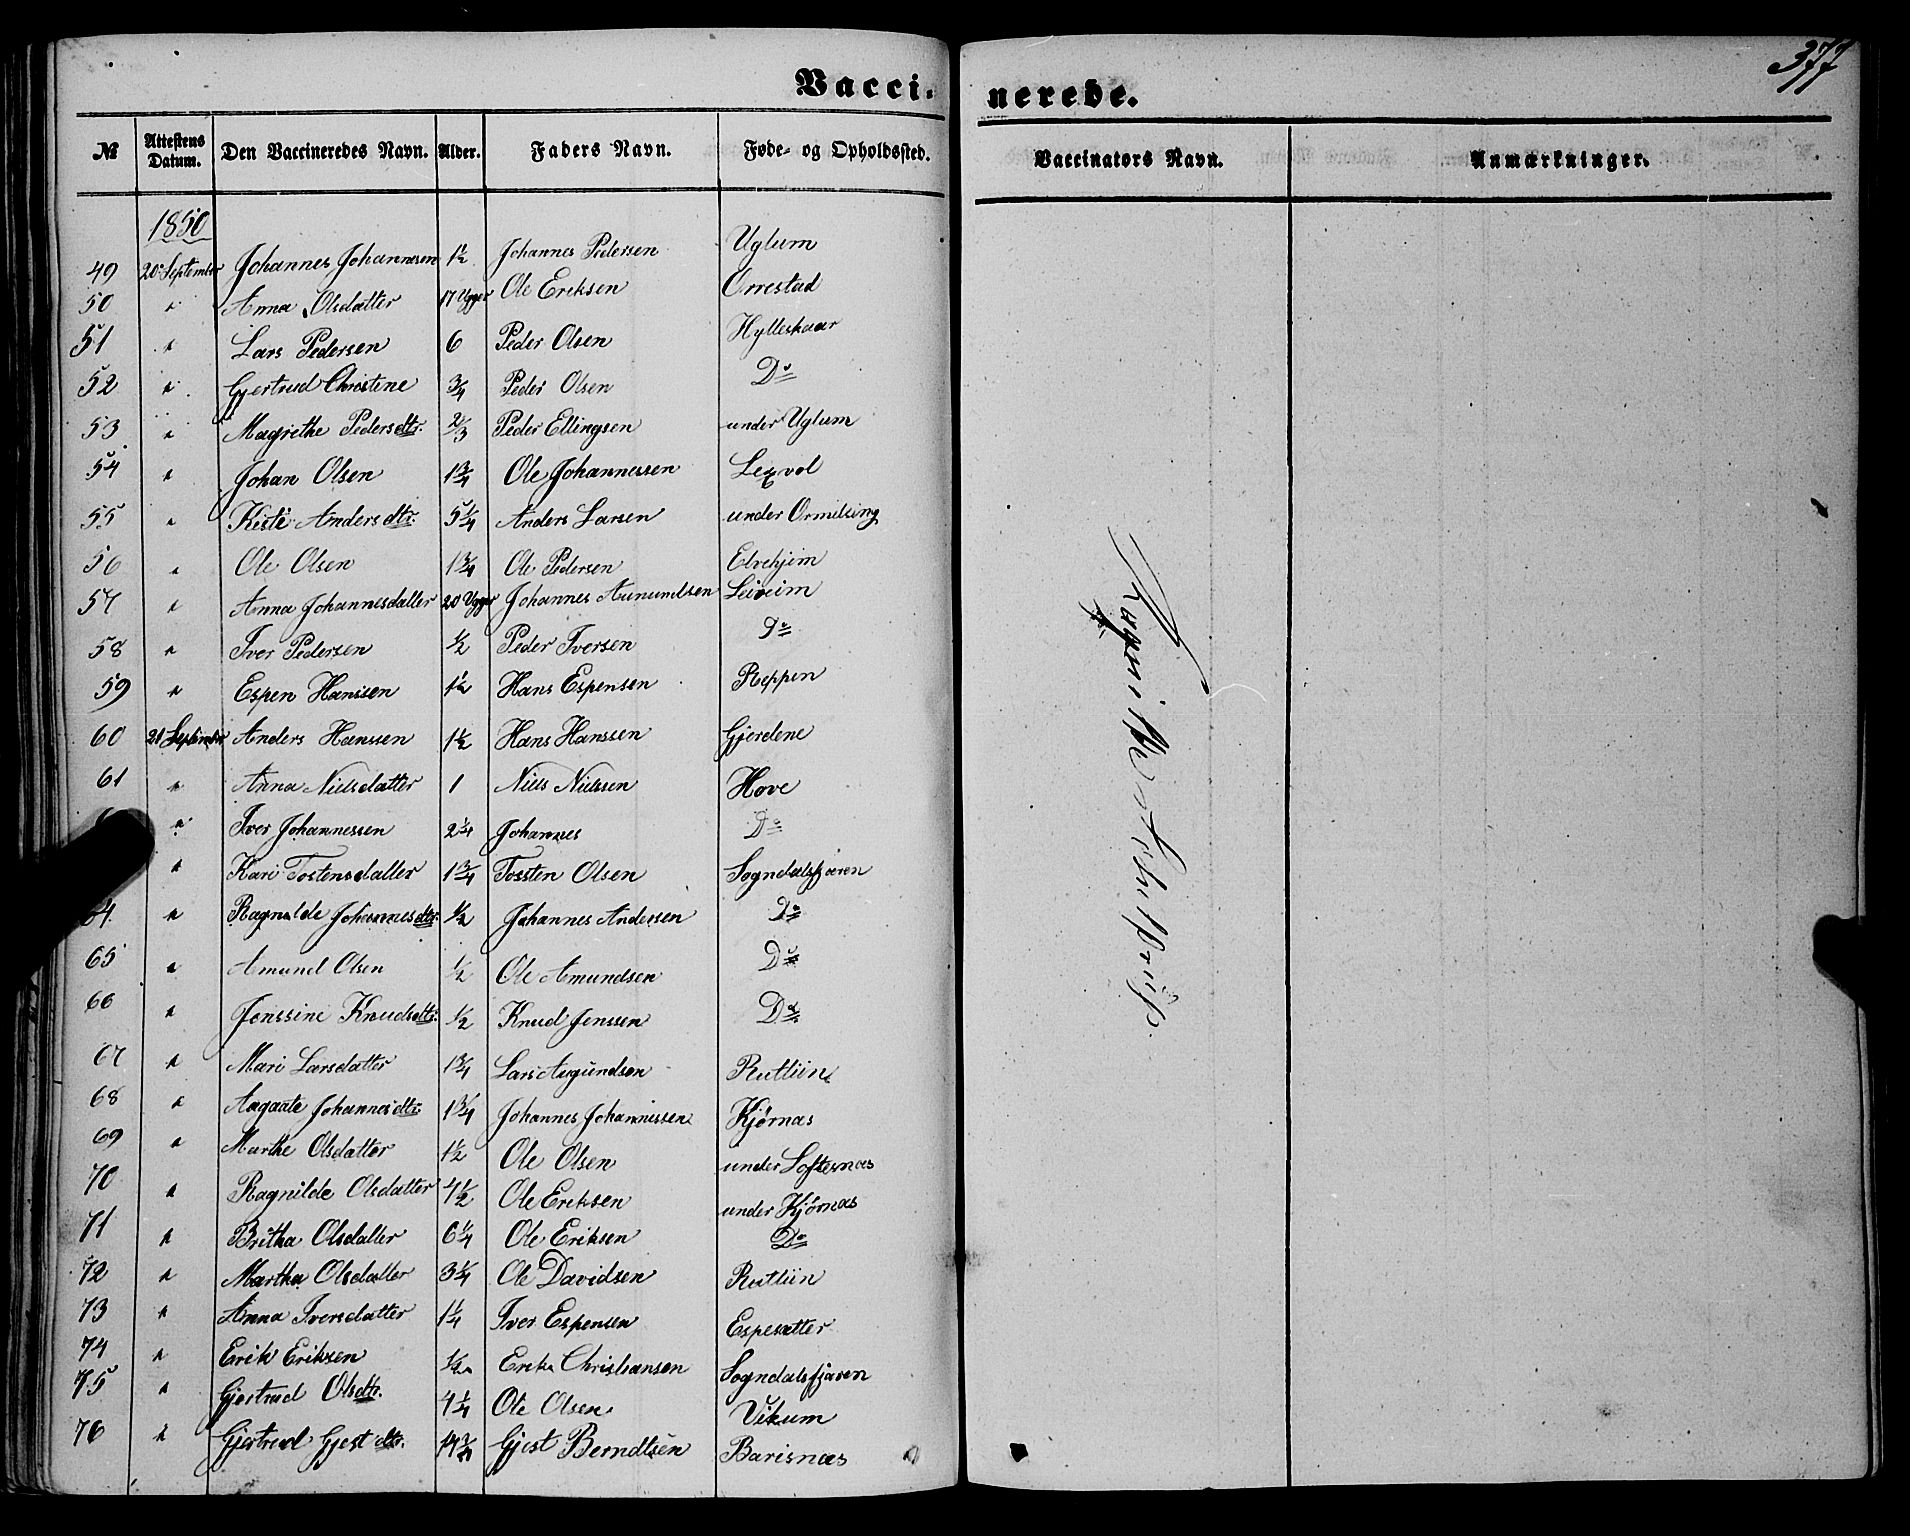 377
Vacci- nerede.
№ Attestens Datum. Den Vaccineredes Navn. Alder. Faders Navn. Føde- og Opholdssted. Vaccinators Navn. Anmærkninger.
1850
49 20 September Johannes Johannesen 1½ Johannes Pedersen Uglum
50 " Anna Olsdatter 17 Uger Ole Eriksen Orrestad
51 " Lars Pedersen 6 Peder Olsen Hylleskaar
52 " Gjertrud Christene ¾ Peder Olsen Do
53 " Magrethe Pedersdtr. ⅔ Peder Ellingsen under Uglum
54 " Johan Olsen 1¾ Ole Johannessen
55 " Anders dtr. 5¼ Anders Larsen under
56 " Ole Olsen 1¾ Ole Pedersen
57 " Anna Johannesdatter 20 Uger Johannes
58 " Iver Pedersen ½ Peder Iversen Do
59 " Espen Hanssen 1½ Hans Espensen Reppen
60 21 September Anders Hanssen 1½ Hans Hanssen Gjerdene
61 " Anna Nielsdatter 1 Niels Nielssen Hove
" Iver Johannessen 2¼ Johannes Do
" Kari Tostensdatter 1¾ Tossten Olsen Sogndalsfjæren
64. " Ragnilde Johannesdtr. ½ Johannes Andersen Do
65 " Amund Olsen ½ Ole Amundsen Do
66 " Jenssine Knudsdtr. ½ Knud Jenssen Do
67 " Mari Larsdatter 1¾ Lars Rutliin
68 " Aagaate Johannesdtr. 1¾ Johannes Johannessen Kjørnæs
69 " Marthe Olsdatter 1½ Ole Olsen under Loftesnæs
70 " Ragnilde Olsdatter 4½ Ole Eriksen under Kjørnæs
71 " Britha Olsdatter 6¼ Ole Eriksen Do
72 " Martha Olsdatter 3¼ Ole Davidsen Rutliin
73 " Anna Iversdatter 1¼ Iver Espensen Espesætter
74 " Erik Eriksen ½ Christiansen Sogndalsfjæren
75 " Gjertrud Olsdtr. 4¼ Ole Olsen Vikum
76 " Gjertrud Gjest dtr. Gjest Berndtsen Barisnæs